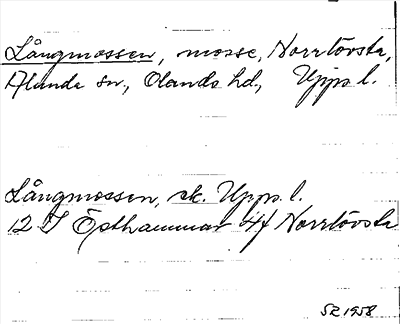 Långmossen, mosse, Norrlövsta,
Alunda sn., Olands hd., Upps l.
Långmossen, sk. Upps. l.
12 I Östhammar 4f Norrlövsta
SR 1958